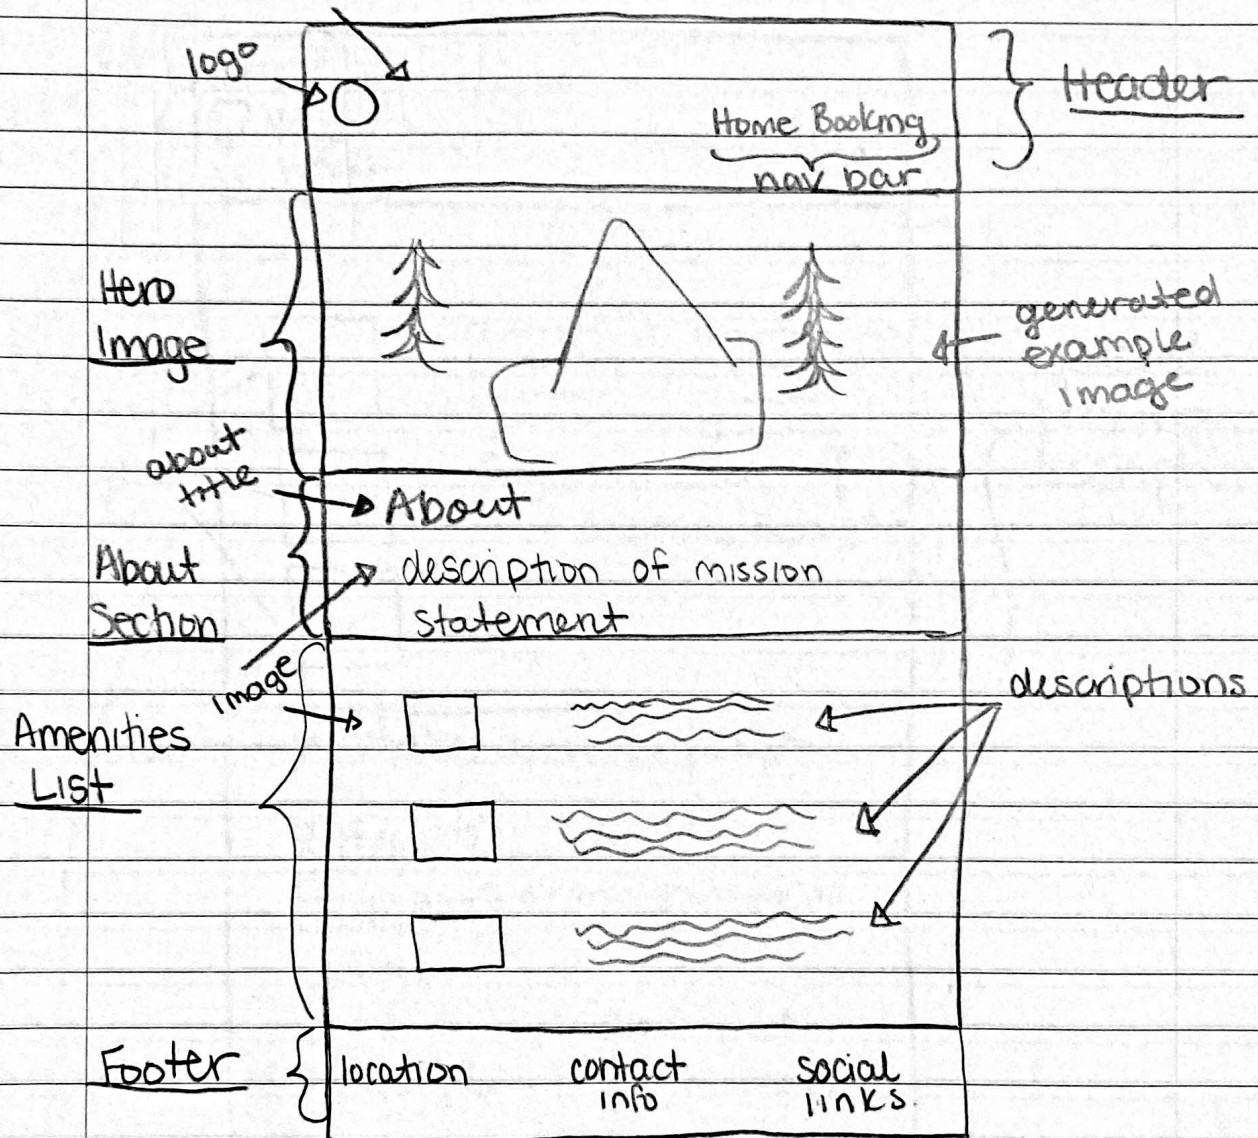 logo
Header
Home Booking
nav bar
Hero
Image
generated
example
image
about
title
About
About
Section
description of mission
statement
image
descriptions
Amenities
List
Footer
location
contact
info
social
links